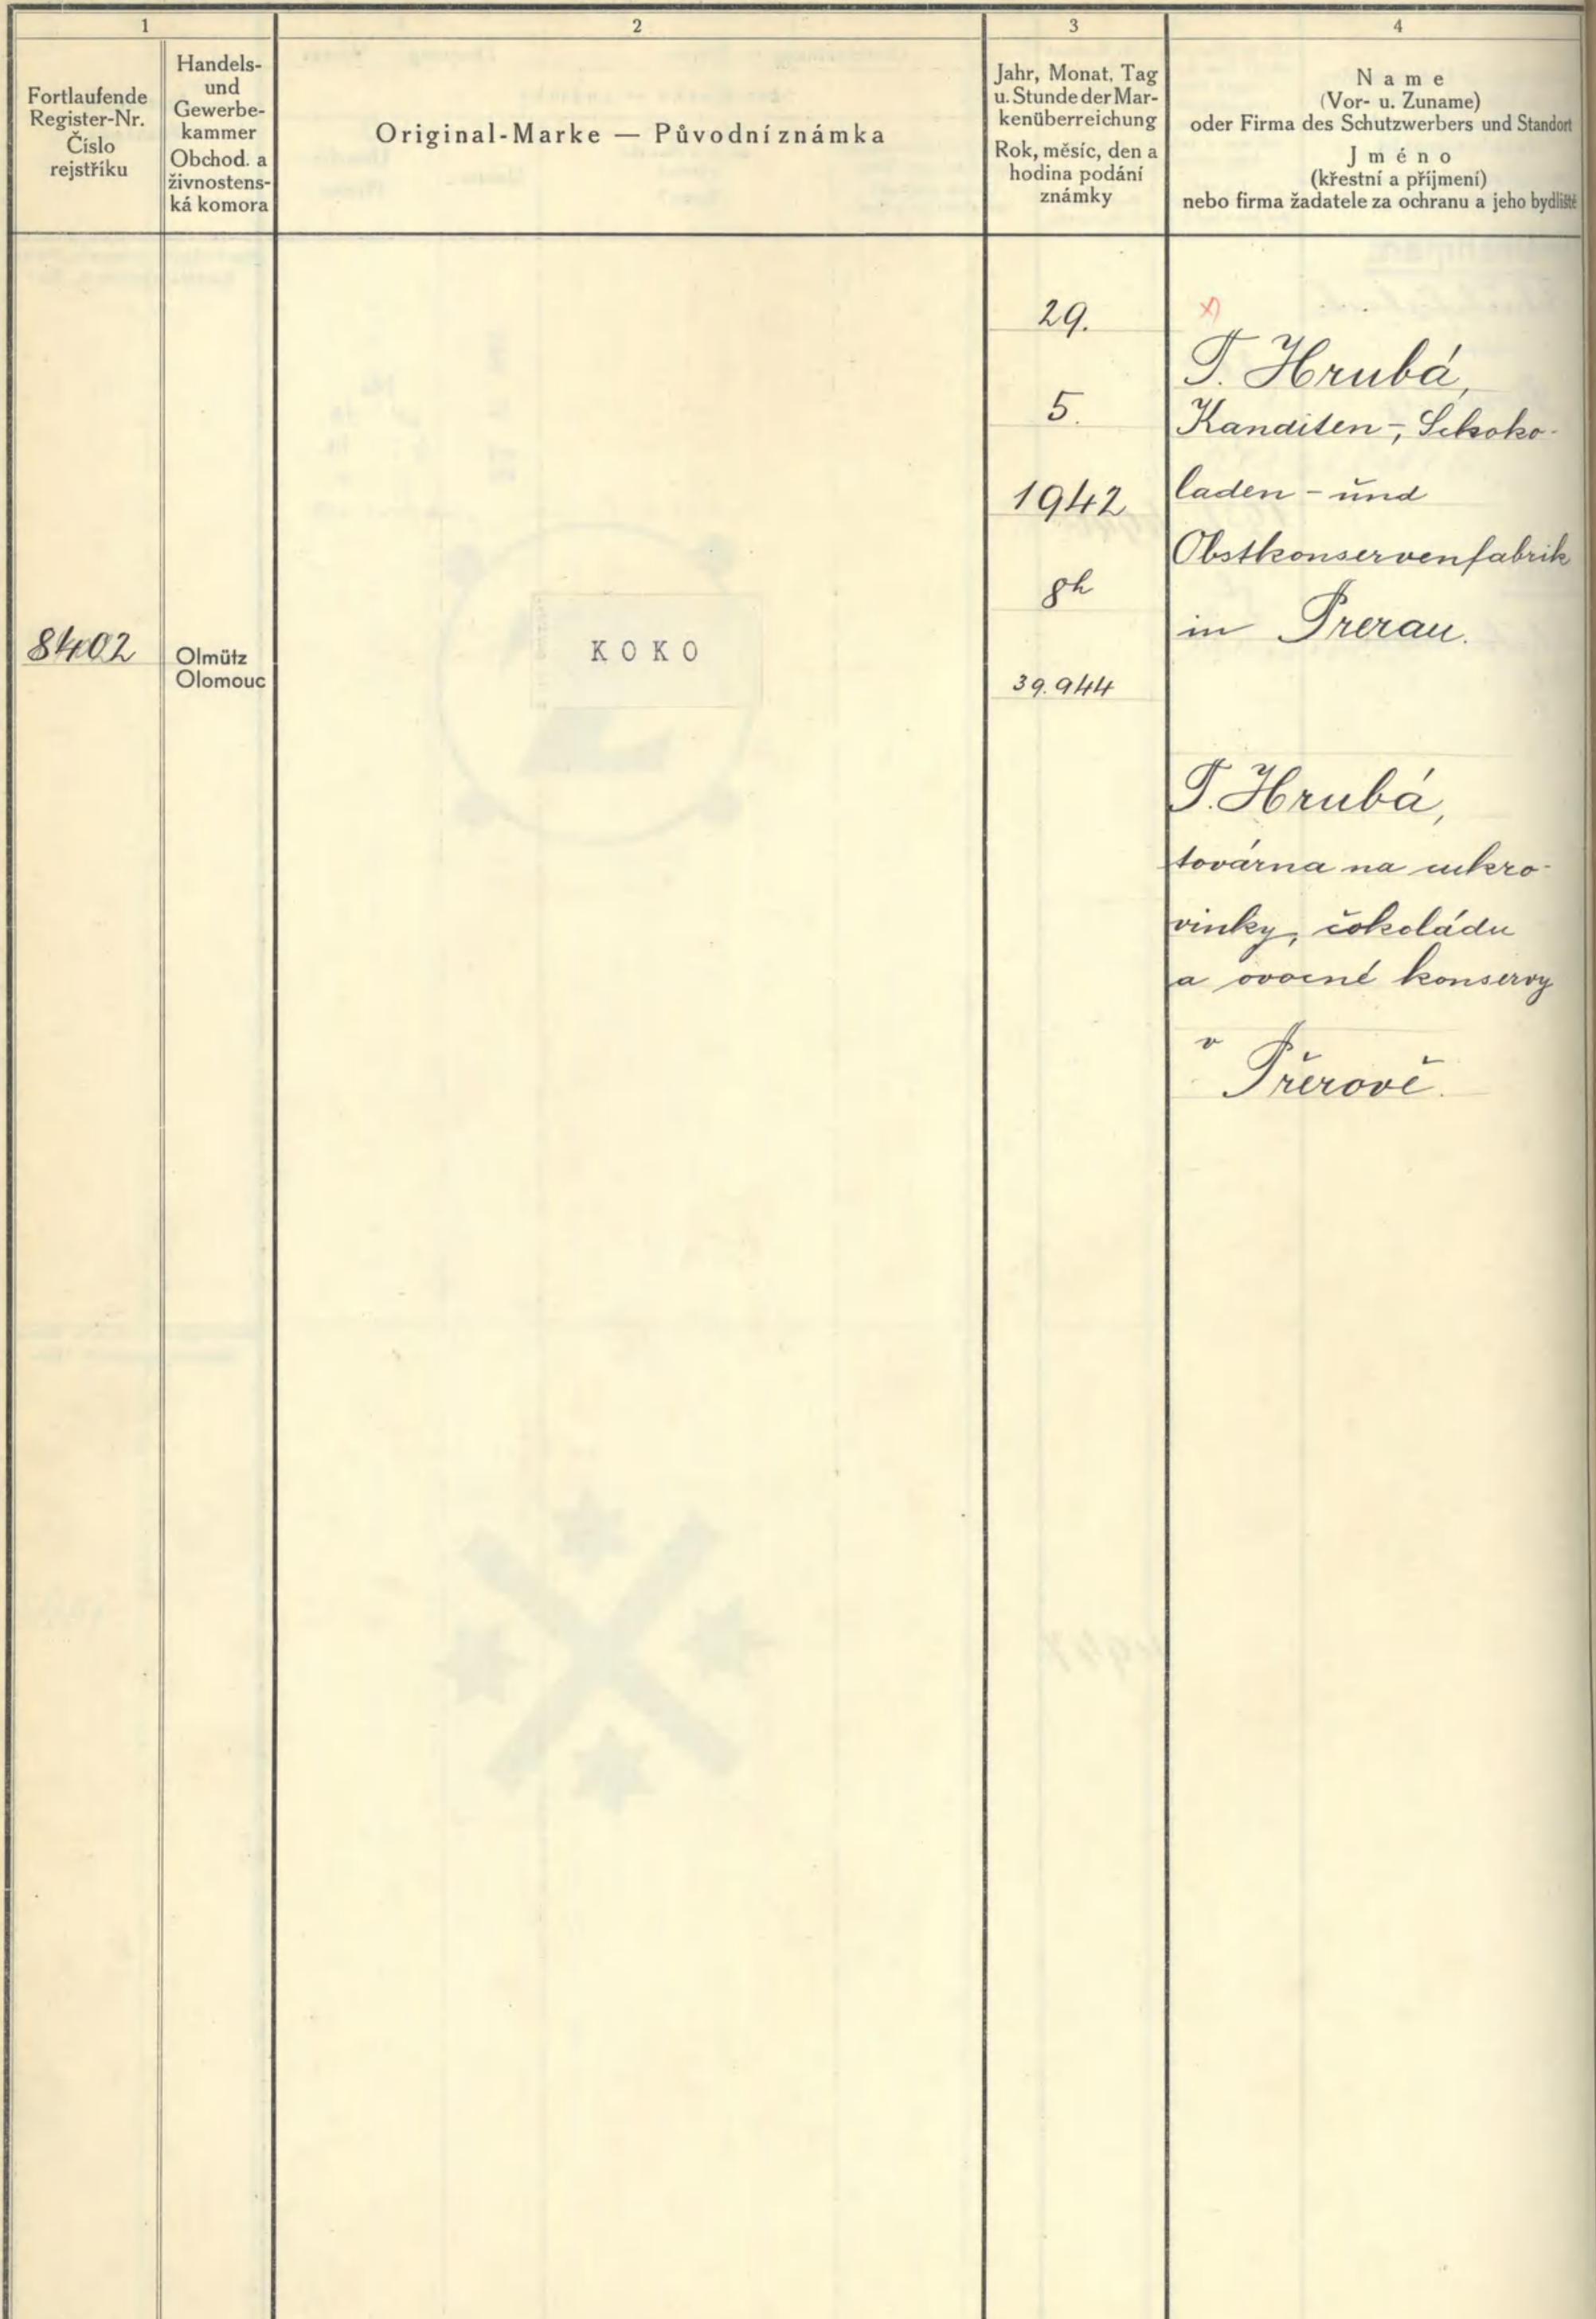 1
2
3
4
Fortlaufende
Register-Nr.
Číslo
rejstříku
Handels-
und
Gewerbe-
kammer
Obchod. a
živnostens-
ká komora
Original-Marke — Původní známka
Jahr, Monat, Tag
u. Stunde der Mar-
kenüberreichung
Rok, měsíc, den a
hodina podání
známky
Name
(Vor- u. Zuname)
oder Firma des Schutzwerbers und Standort
Jméno
(křestní a příjmení)
nebo firma žadatele za ochranu a jeho bydliště
8402
Olmütz
Olomouc
KOKO
29.
5.
1942
8h
39.944
x)
T. Hrubá,
Kanditen-, Schoko-
laden- und
Obstkonservenfabrik
in Prerau.
T. Hrubá,
továrna na cukro-
vinky, čokoládu
a ovocné konservy
v
Přerově.